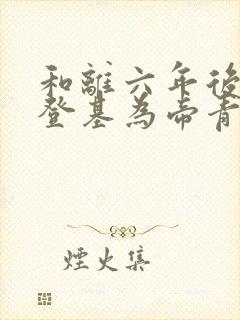 和離六年後
登基為帝肯
煙火集